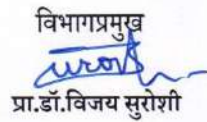 विभागप्रमुख
प्रा.डॉ.विजय सुरोशी